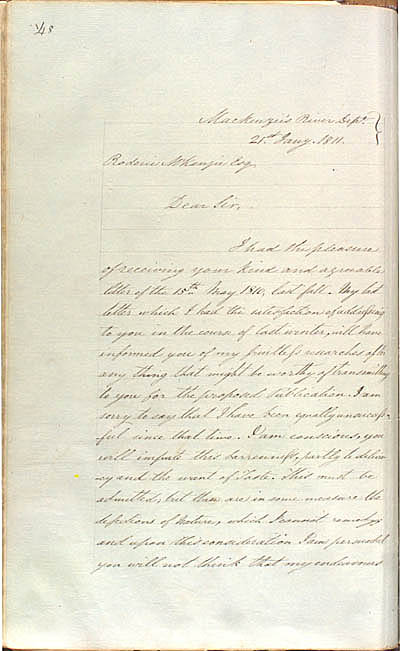 48
Mackenzie's River Dept.
21st Jany. 1811.
Roderic McKenzie Esq
Dear Sir,
I had the pleasure
of receiving your kind and agreeable
letter of the 15th May 1810, last fall. My last
letter which I had the satisfaction of addressing
to you in the course of last winter, will have
informed you of my fruitless researches after
any thing that might be worthy of transmitting
to you for the proposed Publication. I am
sorry to say that I have been equally unsuccess-
ful since that time. I am conscious, you
will impute this barrenness, partly to
and the want of Taste. This must be
admitted, but these are in some measure the
of Nature, which I cannot remedy
and upon this consideration I am persuaded
you will not think that my endeavours